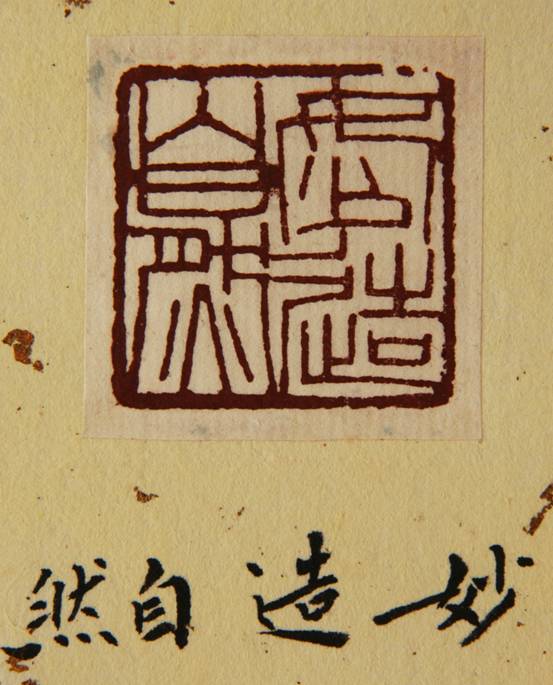 妙造
自然
妙造自然